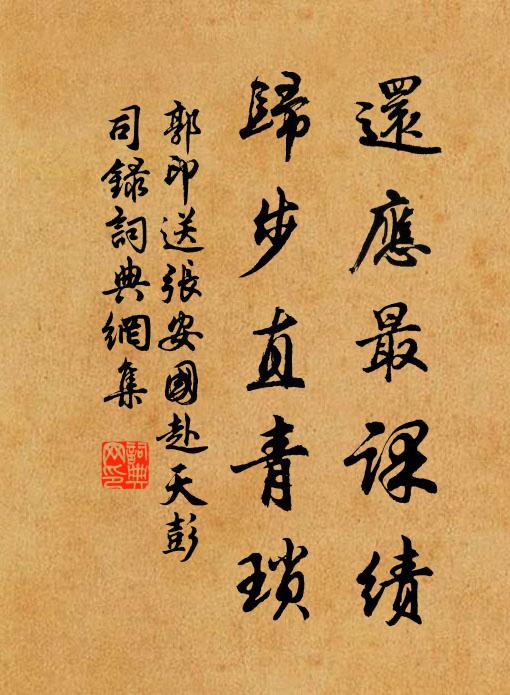 還應最課績
歸步直青瑣
郭印送張安國赴天彭
司録詞典網集
詞典网印